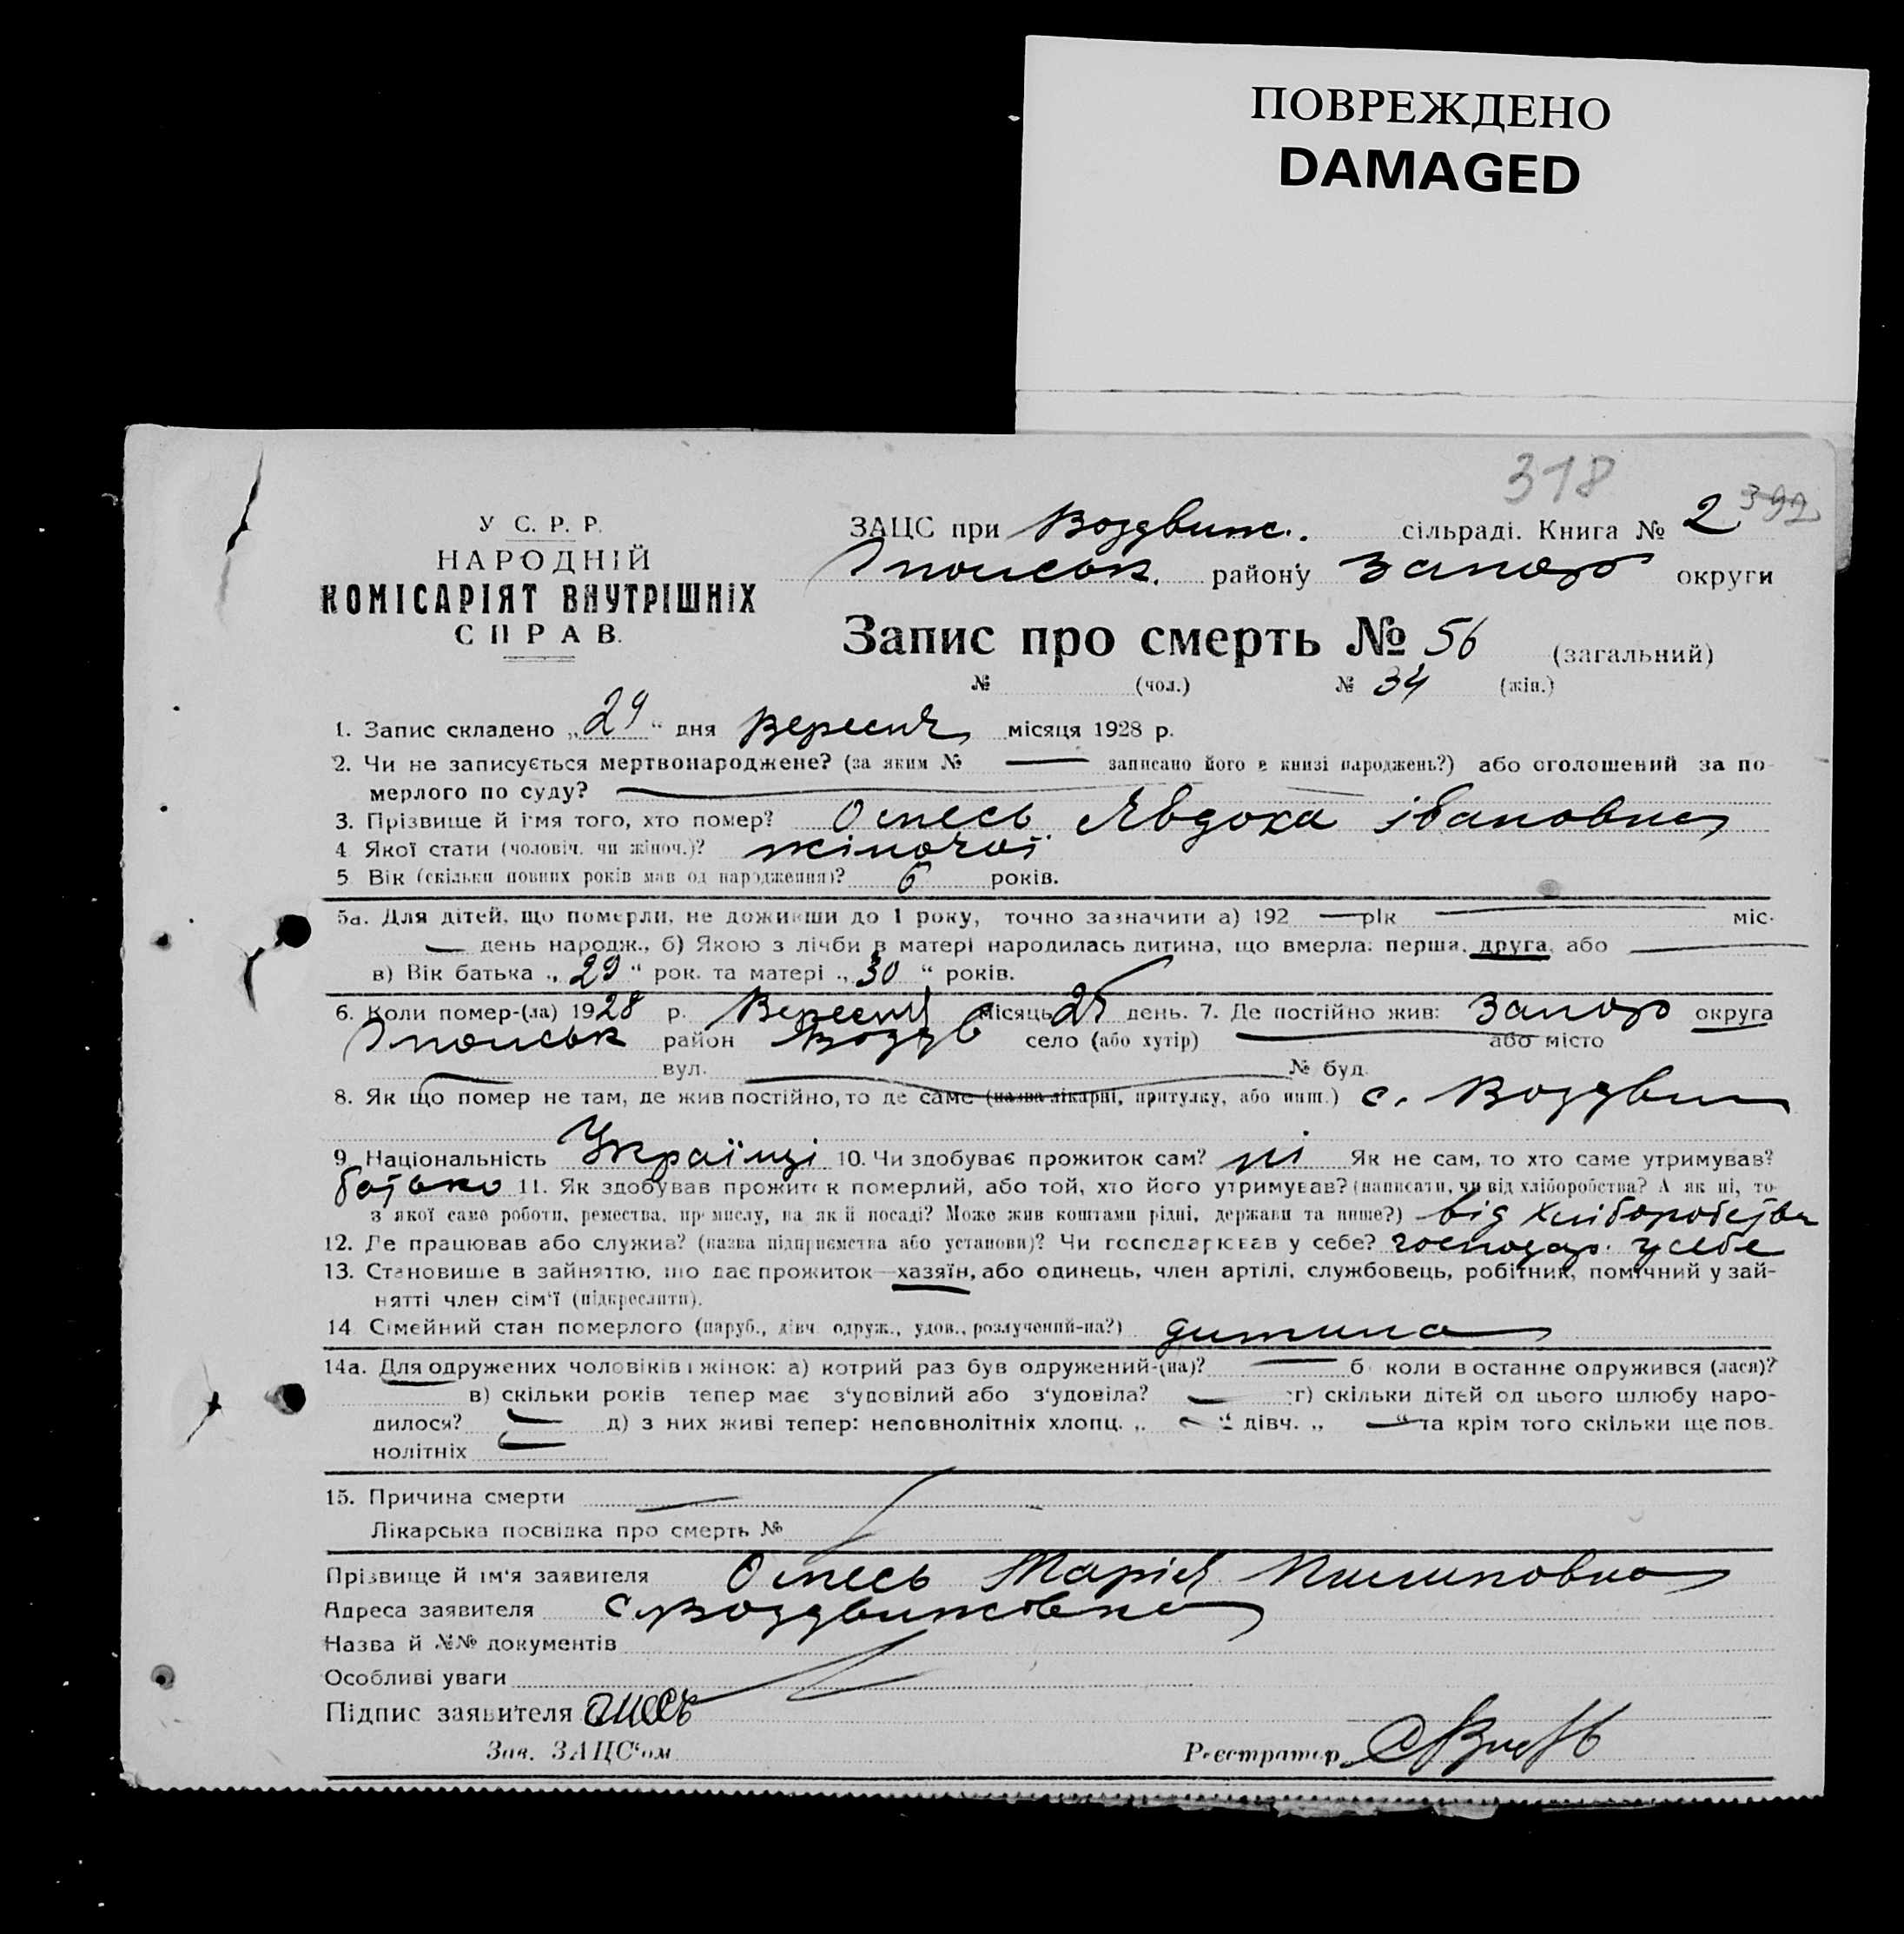 ПОВРЕЖДЕНО
DAMAGED
318
У С. Р. Р.
НАРОДНІЙ
КОМІСАРІЯТ ВНУТРІШНІХ
СПРАВ.
ЗАЦС при Воздвиж. сільраді. Книга № 2 392
району Запоро округи
Запис про смерть № 56 (загальний)
№ (чол.) № 34 (жін.)
1. Запис складено „29“ дня Вересня місяця 1928 р.
2. Чи не записується мертвонароджене? (за яким № — записано його в книзі народжень?) або оголошений за по
мерлого по суду? —
3. Прізвище й ім'я того, хто помер? Явдоха Івановна
4 Якої стати (чоловіч. чи жіноч.)? жіночої
5 Вік (скільки повних років мав од народження)? 6 років.
5а. Для дітей, що померли, не доживши до 1 року, точно зазначити а) 192 — рік — міс.
— день народж., б) Якою з лічби в матері народилась дитина, що вмерла: перша, друга, або —
в) Вік батька „29“ рок. та матері „30“ років.
6. Коли помер-(ла) 1928 р. Вересня місяць 25 день. 7. Де постійно жив: Запоро округа
район Воздв село (або хутір) — або місто
— вул. — № буд.
8. Як що помер не там, де жив постійно, то де саме (назва лікарні, притулку, або инш.) с. Воздвиж
9. Національність Українці 10. Чи здобуває прожиток сам? ні Як не сам, то хто саме утримував?
батько 11. Як здобував прожиток померлий, або той, хто його утримував? (написати, чи від хліборобства? А як ні, то
з якої саме роботи, ремества, промислу, на якій посаді? Може жив коштами рідні, держави та инше?) від хліборобства
12. Де працював або служив? (назва підприємства або установи)? Чи господарював у себе? господар. у себе
13. Становище в зайняттю, що дає прожиток—хазяїн, або одинець, член артілі, службовець, робітник, помічний у зай-
нятті член сім'ї (підкреслити).
14 Сімейний стан померлого (паруб., дівч. одруж., удов., розлучений-на?) дитина
14а. Для одружених чоловіків і жінок: а) котрий раз був одружений-(на)? — б) коли в останнє одружився (лася)?
в) скільки років тепер має з'удовілий або з'удовіла? — г) скільки дітей од цього шлюбу наро-
дилося? — д) з них живі тепер: неповнолітніх хлопц. „—“ дівч. „—“ та крім того скільки ще пов.
нолітніх —
15. Причина смерти —
Лікарська посвідка про смерть №
Прізвище й ім'я заявителя Марія
Адреса заявителя с. Воздвижовка
Назва й №№ документів
Особливі уваги
Підпис заявителя
Зав. ЗАЦС'ом
Реєстратор